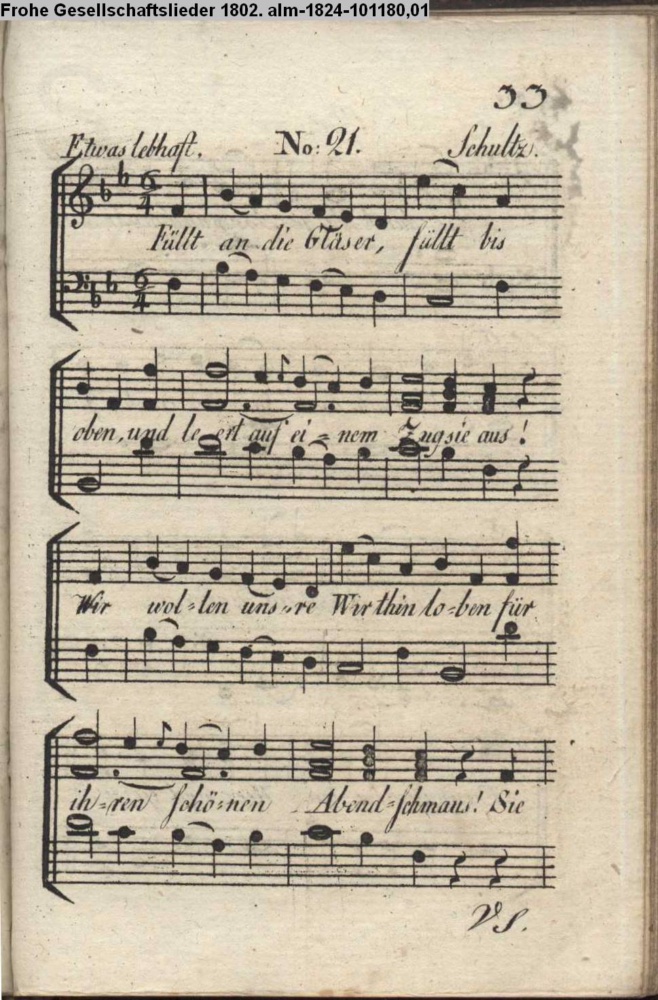 Frohe Gesellschaftslieder 1802. alm-1824-101180,01
33
Etwas lebhaft. No: 21. Schultz.
6/4
Füllt an die Gläser, füllt bis
6/4
oben, und le-ert auf ei=nem Zug sie aus!
Wir wol=len uns=re Wirthin lo=ben für
ih=ren schö=nen Abend=schmaus! Sie
VS.